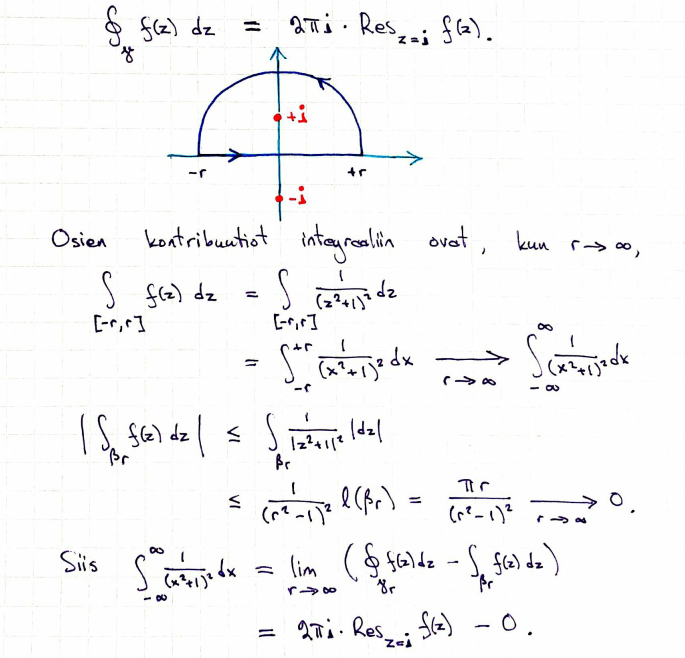 ∮_γ f(z) dz = 2πi · Res_{z=i} f(z).
+i
-r
+r
-i
Osien kontribuutiot integraaliin ovat, kun r → ∞,
∫_{[-r,r]} f(z) dz = ∫_{[-r,r]} 1/(z²+1)² dz
= ∫_{-r}^{+r} 1/(x²+1)² dx ⟶_{r→∞} ∫_{-∞}^{∞} 1/(x²+1)² dx
|∫_{βr} f(z) dz| ≤ ∫_{βr} 1/|z²+1|² |dz|
≤ 1/(r²-1)² ℓ(βr) = πr/(r²-1)² ⟶_{r→∞} 0.
Siis ∫_{-∞}^{∞} 1/(x²+1)² dx = lim_{r→∞} (∮_{γr} f(z) dz - ∫_{βr} f(z) dz)
= 2πi · Res_{z=i} f(z) - 0.